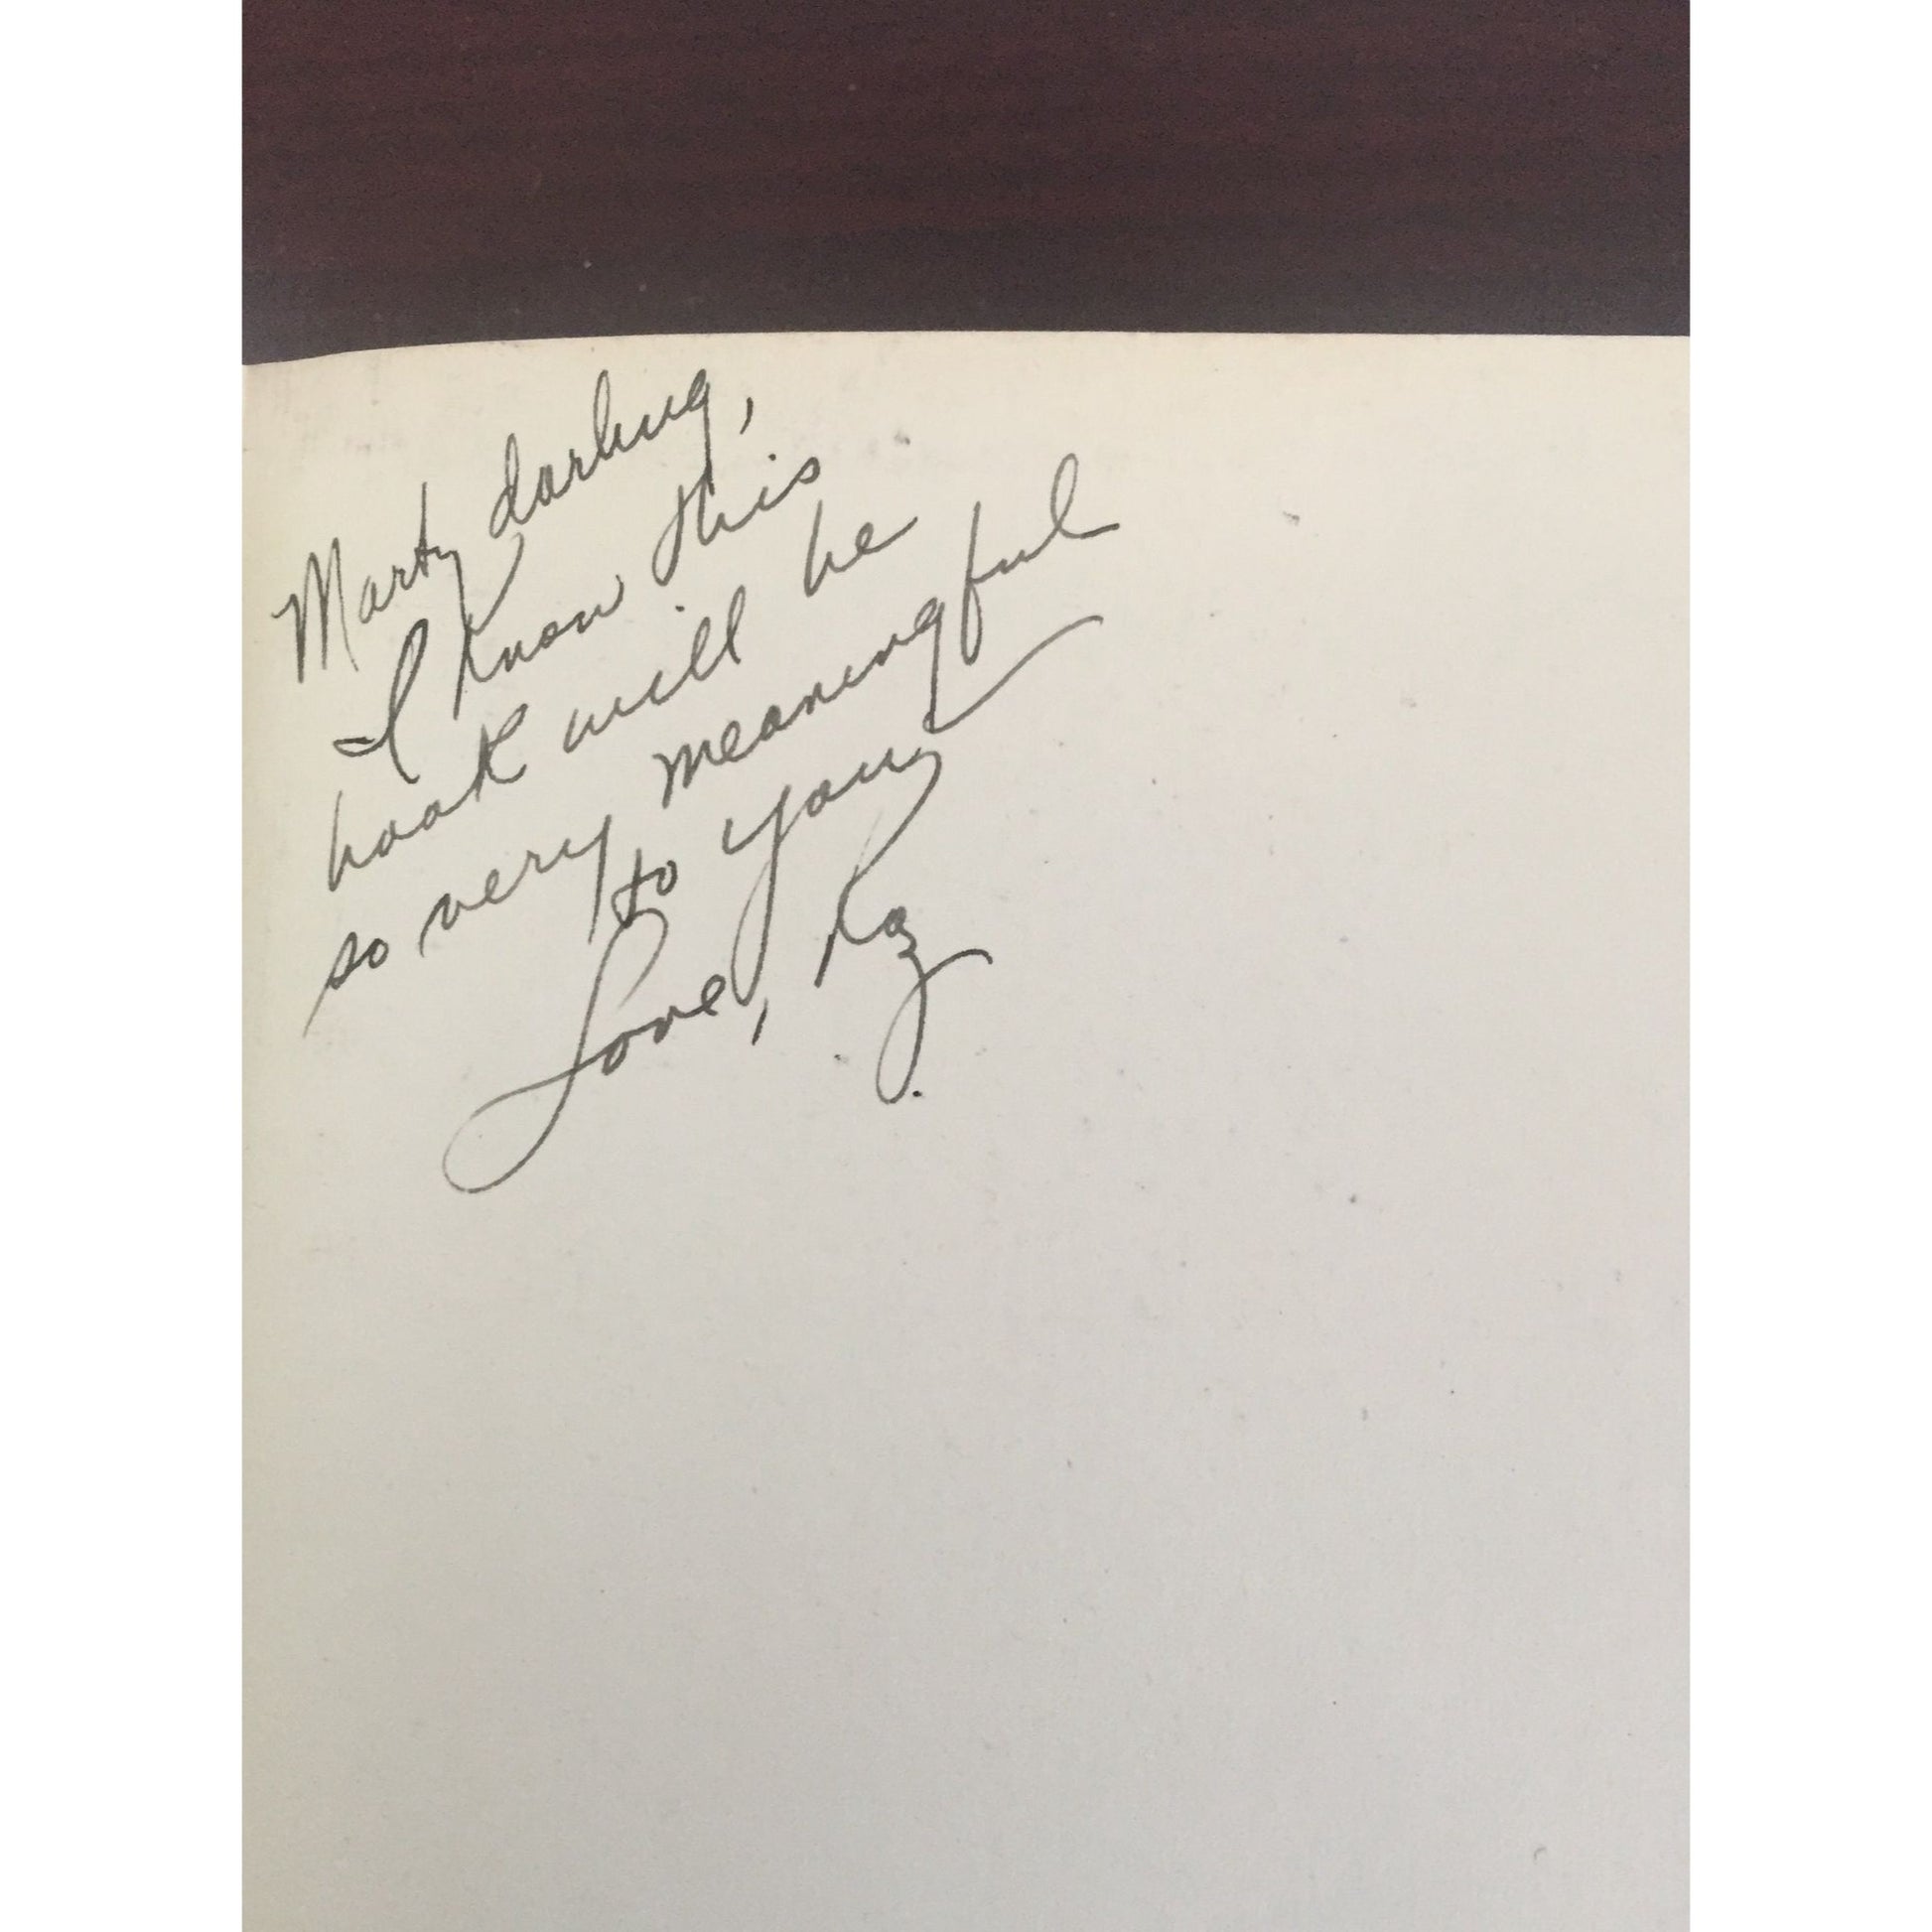 Marty darling,
I know this
book will be
so very meaningful
to you
Love, Roz.